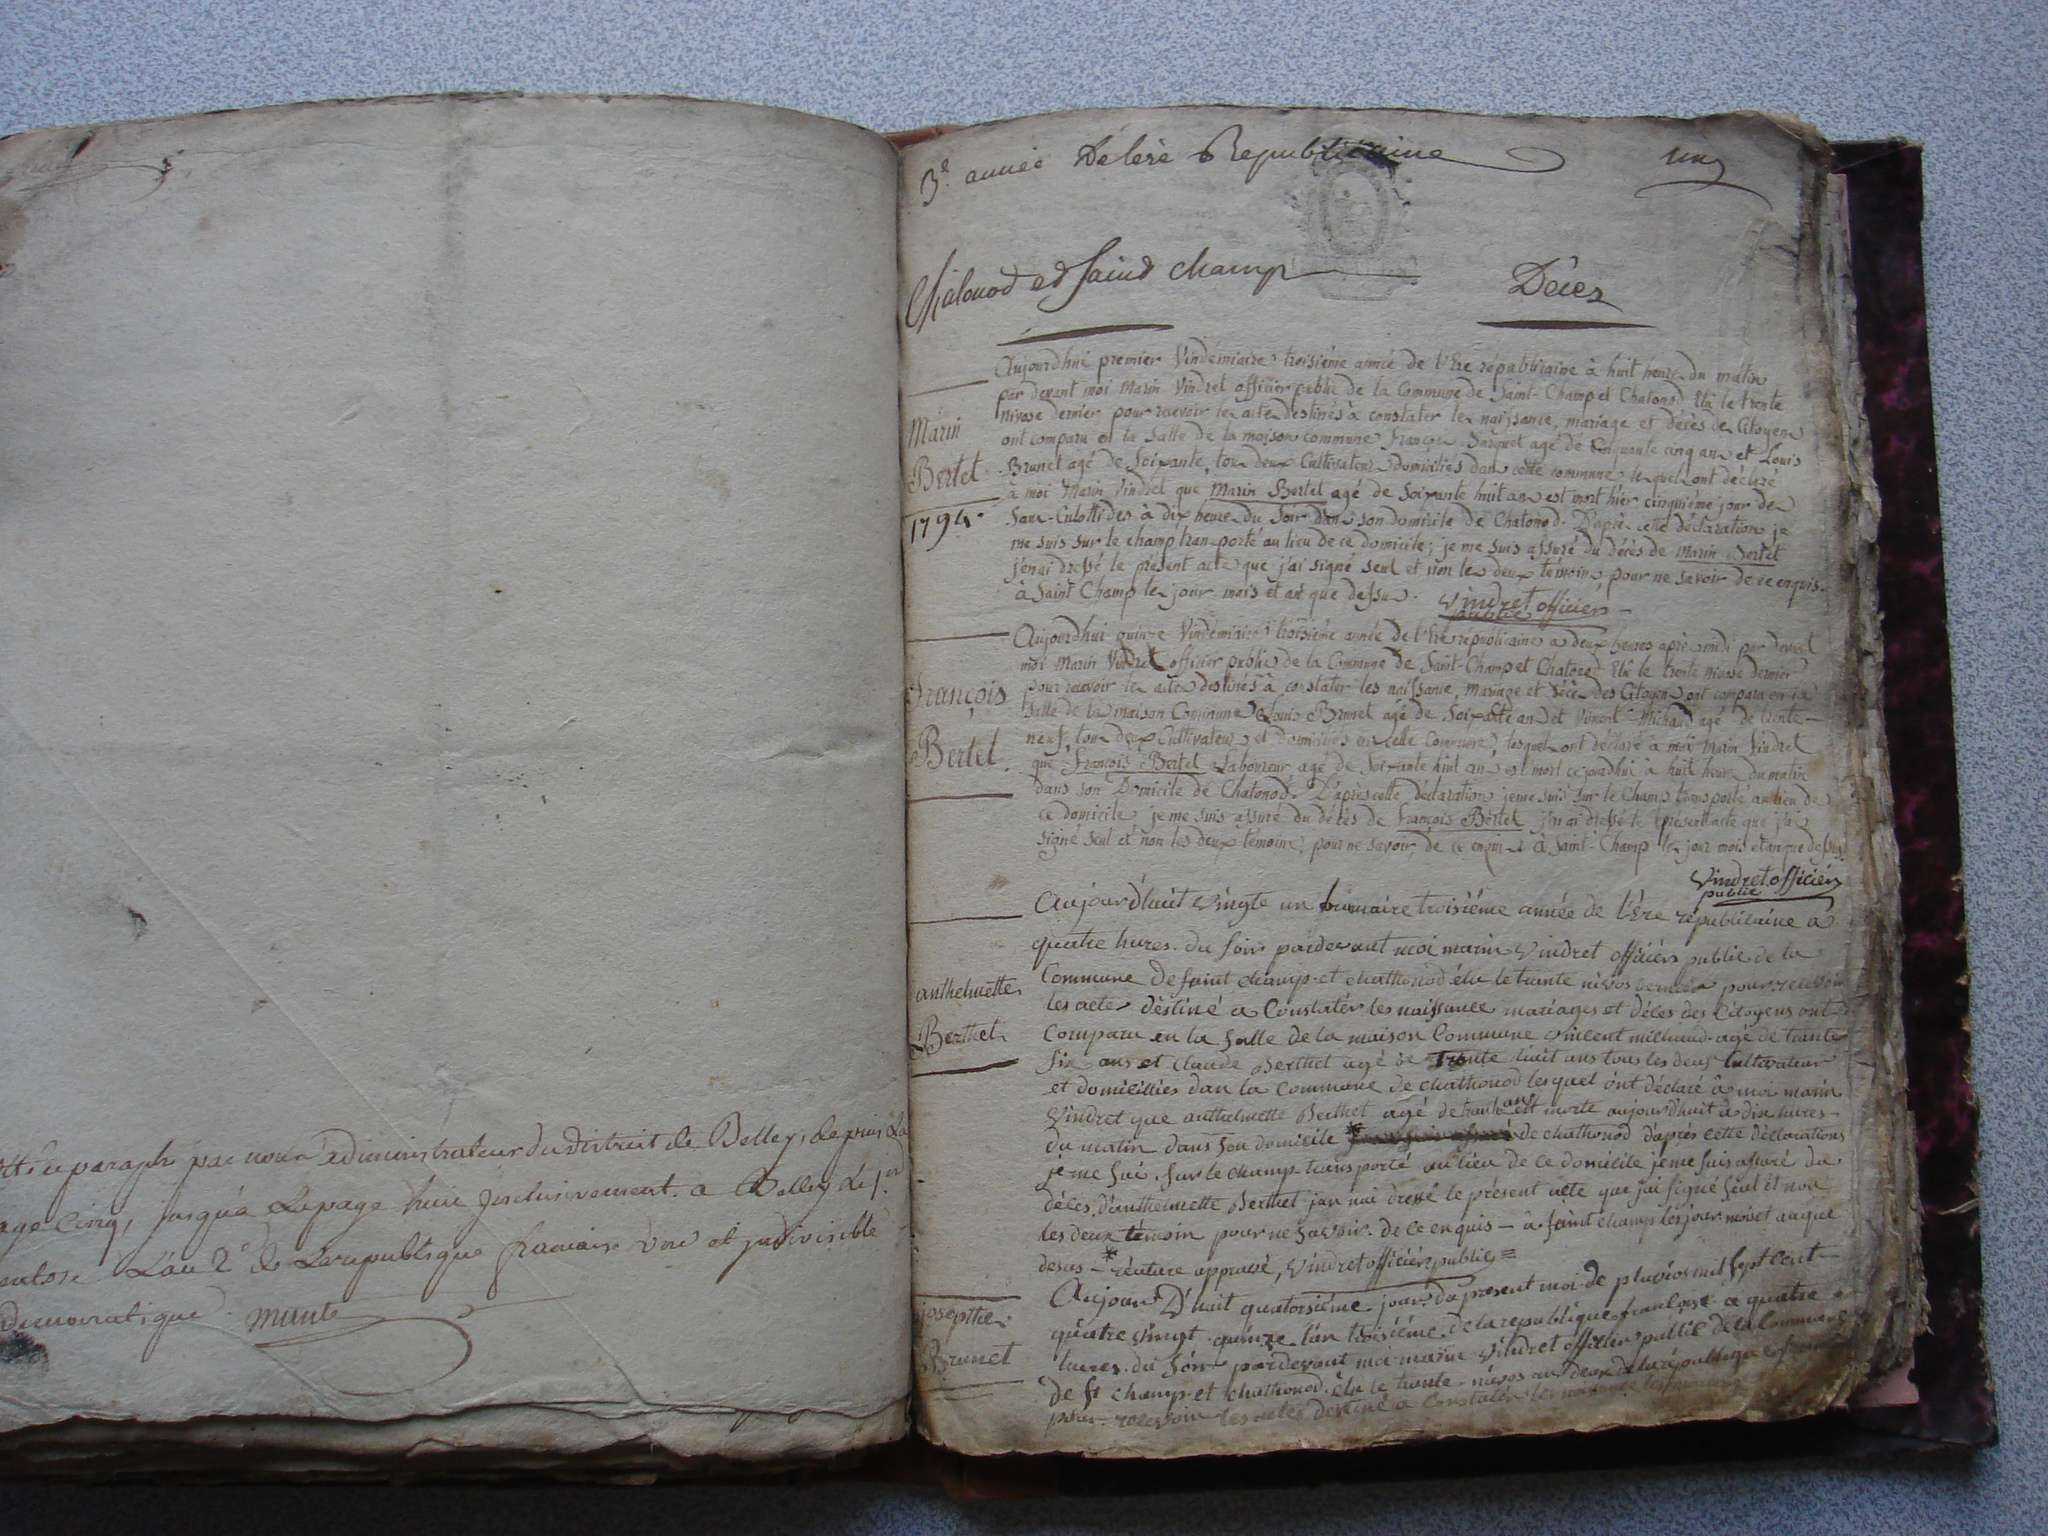 Cotté et paraphé par nous administrateur du district de Belley, depuis la
page Cinq, jusqu'à la page huit inclusivement. a Belley le 1.er
ventose L'an 2.e de la republique francaise une et indivisible
democratique.
3.e année de lere Republicaine
un
Chatonod et saint champ
Décez
Marin
Bertet
1794.
Aujourdhui premier Vindemiaire troisième année de l'Ere républicaine à huit heure du matin
par devant moi Marin Vindret officier public de la Commune de Saint-Champ et Chatonod Elû le trente
nivose dernier pour recevoir les actes destinés à constater les naissance, mariage et décès des Citoyens
ont comparu en la salle de la maison commune François Sarquet agé de Cinquante cinq ans et Louis
Brunet agé de Soixante, tous deux Cultivateurs Domiciliés dans cette commune, lesquels ont déclaré
à moi Marin Vindret que Marin Bertet agé de soixante huit ans est mort hier cinquième jour des
Sans-Culottides à dix heures du Soir dans son domicile de Chatonod. D'après cette déclaration je
me suis sur le champ transporté au lieu de ce domicile; je me suis assuré du décès de Marin Bertet
j'en ai dressé le présent acte que j'ai signé seul et non les deux témoins, pour ne savoir de ce enquis.
à Saint Champ les jour mois et an que dessus.
Vindret officier
public
François
Bertet.
Aujourdhui quinze Vindémiaire troisième année de l'Ere républicaine à deux heures après midi par devant
moi Marin Vindret officier public de la Commune de Saint-Champ et Chatonod Elû le trente nivose dernier
pour recevoir les actes destinés à constater les naissance, Mariage et décès des Citoyens ont comparu en la
Salle de la maison Commune Louis Brunet agé de Soixante ans et Vincent Michaud agé de trente-
neuf, tous deux Cultivateurs et domiciliés en celle Commune, lesquels ont déclaré à moi Marin Vindret
que François Bertet Laboureur agé de Soixante huit ans est mort cejourdhui à huit heures du matin
dans son Domicile de Chatonod. D'après cette déclaration je me suis sur le champ transporté au lieu de
ce domicile, je me suis assuré du décès de François Bertet j'en ai dressé le présent acte que j'ai
signé seul et non les deux témoins, pour ne savoir, de ce enquis à Saint-Champ les jour mois et an que dessus
Vindret officier
public
anthelmette
Berthet
Aujourd'huit vingte un frimaire troisième année de l'Ere républicaine a
quatre hures du soir pardevant moi marin Vindret officier public de la
Commune de saint champ et chathonod élu le trante nivos dernier pour recevoir
les actes destiné a Constater les naissance mariages et déces des Citoyens ont
comparu en la salle de la maison Commune vincent michaud agé de trante
six ans et claude Berthet agé de trante huit ans tous les deux Cultivateur
et domicilliés dan la commune de chathonod lesquel ont déclaré a moi marin
Vindret que anthelmette Berthet agé de trante ans est morte aujourd'huit a dix hures
du matin dans son domicile * de chathonod d'après cette déclarations
je me suis sur le champ transporté au lieu de ce domicile je me suis assuré du
déces d'anthelmette Berthet j'an nai dressé le présent acte que j'ai signé seul et non
les deux témoin pour ne savoir de ce enquis - a saint champ les jour mois et an que
desus - * rature approuvé, Vindret officier public
josephte
Brunet
Aujourd'huit quatorsième jour du présent moi de pluvios mil sept cent
quatre vingt quinze l'an troisième de la republique francoise a quatre
hures du soir pardevant moi marin Vindret officier public de la Commune
de st champ et chathonod élu le trante nivos an deux de la république
pour recevoir les actes destiné a Constater les naissance